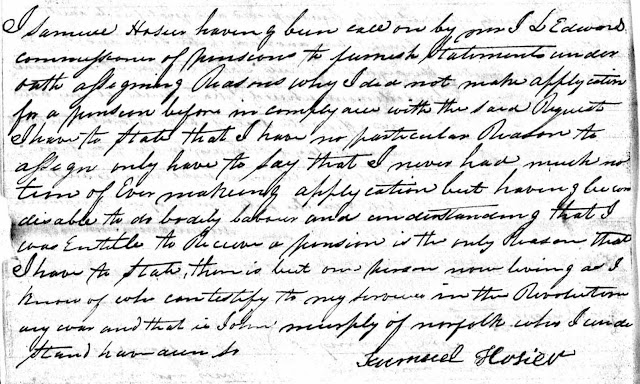 I Samuel Hosier having bin call on by mr J L Edward
commissioner of pensions to furnish statements under
oath assegning Reasons why I did not make application
for a pension before in complyance with the said Request
I have to state that I have no particular Reason to
assegn only have to say that I never had much no
tion of Ever makeing application but having becom
disable to do bodily labour and understanding that I
was Entitle to Receive a pension is the only Reason that
I have to state, there is but one person now living as I
know of who can testify to my services in the Revolution
ary war and that is John murphy of norfolk who I unde
stand have don so
Samuel Hosier